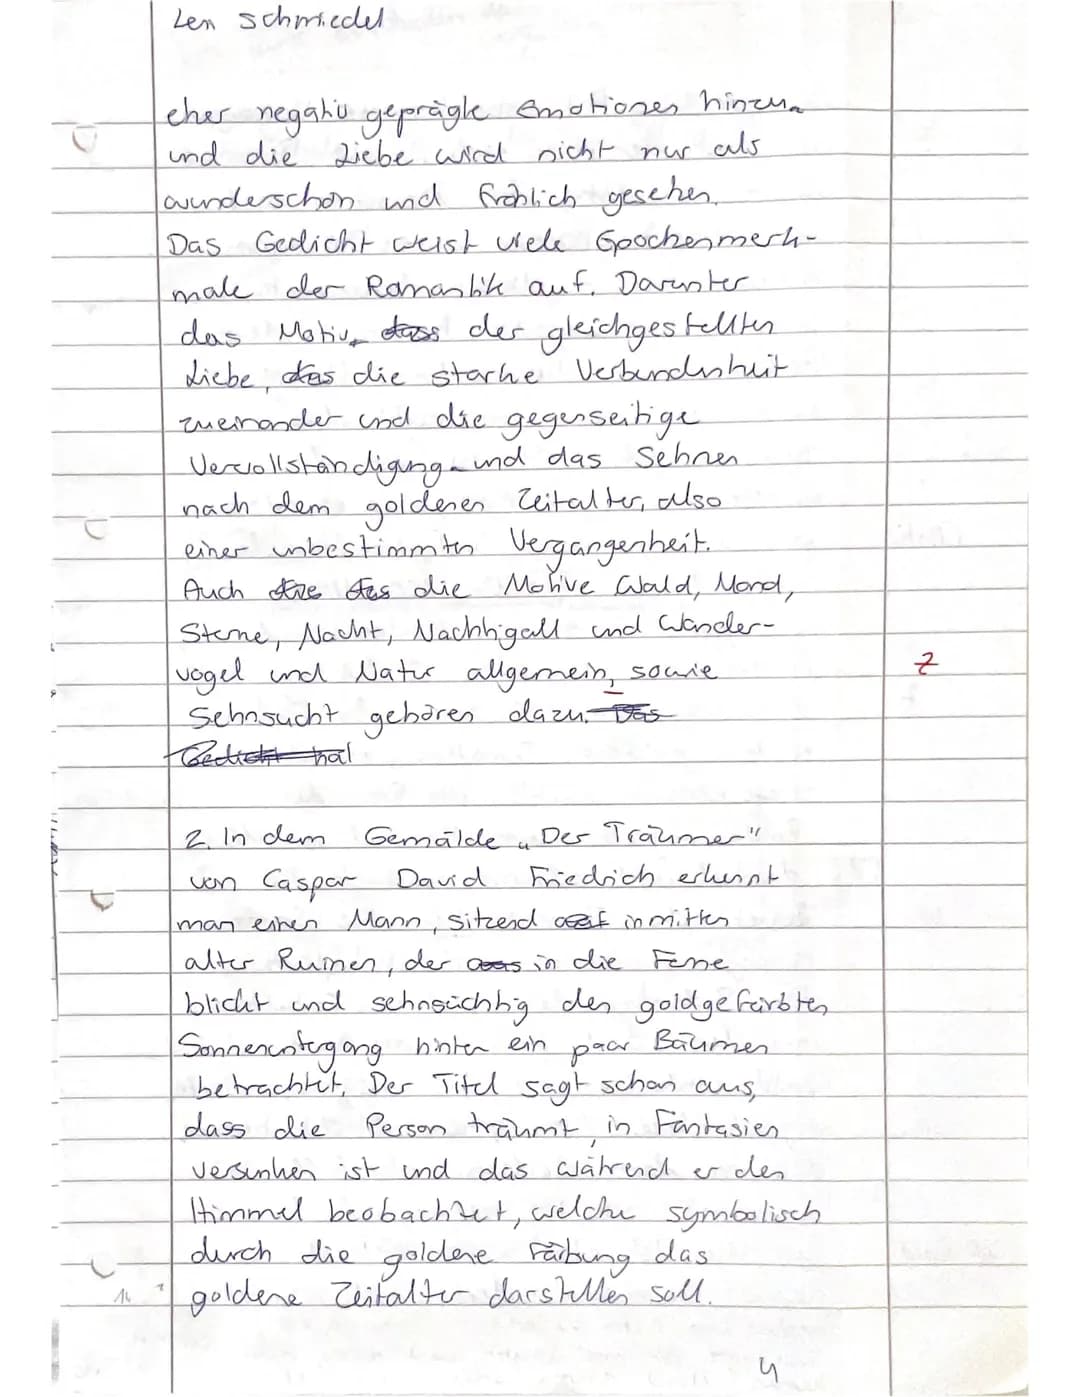 Len Schmiedel
eher negativ geprägte Emotionen hinzu
und die Liebe wird nicht nur als
wunderschön und fröhlich gesehen.
Das Gedicht weist viele Epochenmerk-
male der Romantik auf. Darunter
das Motiv dass der gleichgestellten
Liebe, das die starke Verbundenheit
zueinander und die gegenseitige
Vervollständigung und das Sehnen
nach dem goldenen Zeitalter, also
einer unbestimmten Vergangenheit.
Auch die Motive Wald, Mond,
Sterne, Nacht, Nachtigall und Wander-
vogel und Natur allgemein, sowie
Z
Sehnsucht gehören dazu. Das
Gedicht hat
2. In dem Gemälde „Der Träumer"
von Caspar David Friedrich erkennt
man einen Mann, sitzend auf inmitten
alter Ruinen, der in die Ferne
blickt und sehnsüchtig den goldgefärbten
Sonnenuntergang hinter ein paar Bäumen
betrachtet. Der Titel sagt schon aus,
dass die Person träumt, in Fantasien
versunken ist und das während er den
Himmel beobachtet, welche symbolisch
durch die goldene Färbung das
goldene Zeitalter darstellen soll.
4